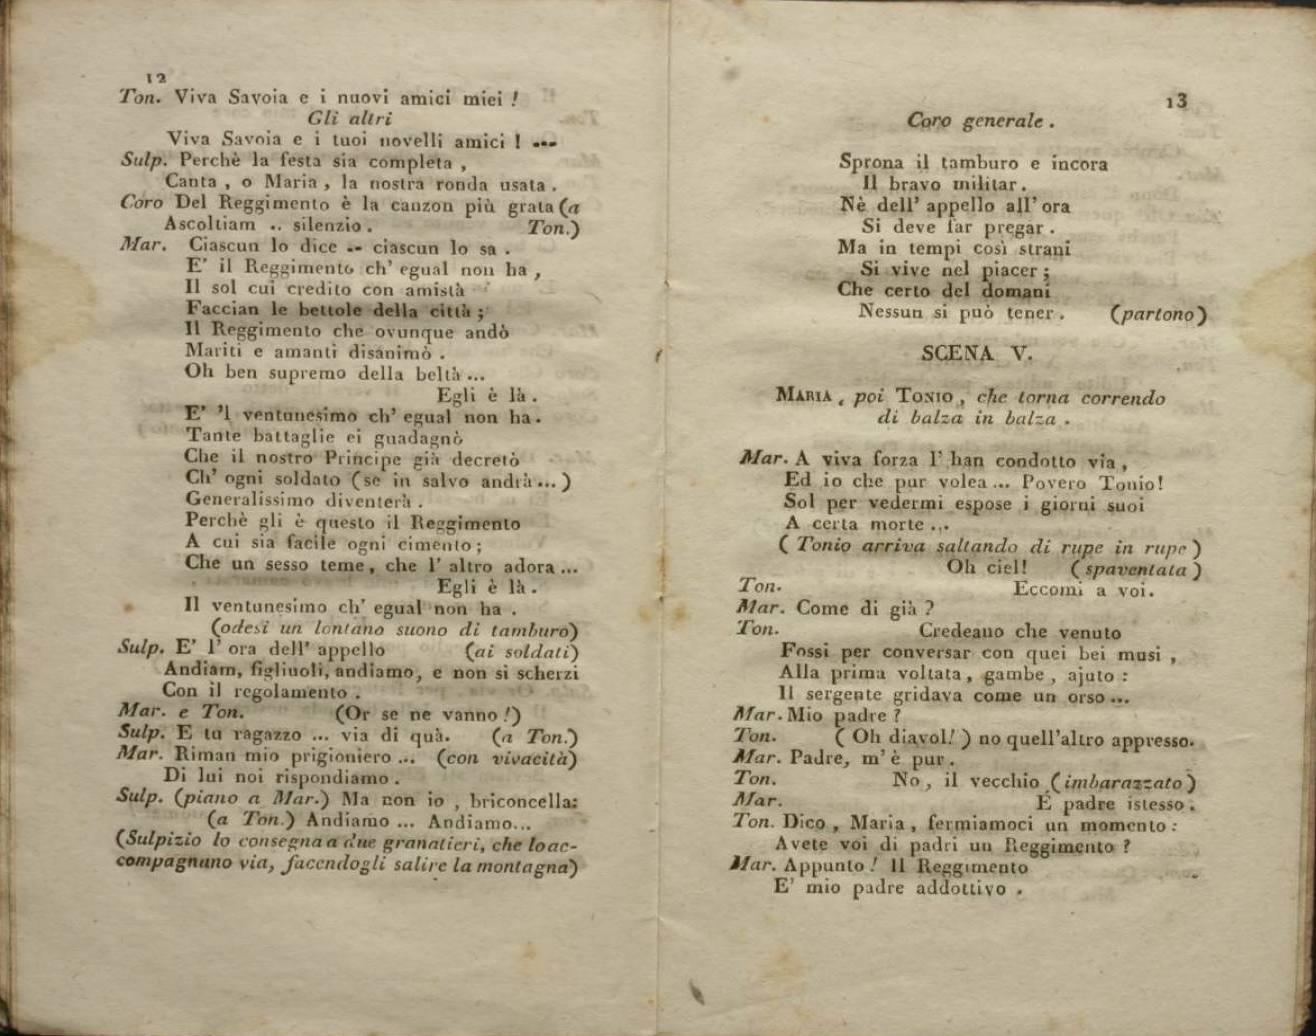 12
Ton. Viva Savoia e i nuovi amici miei !
Gli altri
Viva Savoia e i tuoi novelli amici ! ---
Sulp. Perchè la festa sia completa ,
Canta , o Maria , la nostra ronda usata .
Coro Del Reggimento è la canzon più grata (a
Ascoltiam .. silenzio . Ton.)
Mar. Ciascun lo dice -- ciascun lo sa .
E' il Reggimento ch' egual non ha ,
Il sol cui credito con amistà
Faccian le bettole della città ;
Il Reggimento che ovunque andò
Mariti e amanti disanimò .
Oh ben supremo della beltà ...
Egli è là .
E' 'l ventunesimo ch' egual non ha .
Tante battaglie ei guadagnò
Che il nostro Principe già decretò
Ch' ogni soldato (se in salvo andrà ... )
Generalissimo diventerà .
Perchè gli è questo il Reggimento
A cui sia facile ogni cimento ;
Che un sesso teme , che l' altro adora ...
Egli è là .
Il ventunesimo ch' egual non ha .
(odesi un lontano suono di tamburo)
Sulp. E' l' ora dell' appello (ai soldati)
Andiam, figliuoli, andiamo, e non si scherzi
Con il regolamento .
Mar. e Ton. (Or se ne vanno !)
Sulp. E tu ragazzo ... via di quà. (a Ton.)
Mar. Riman mio prigioniero ... (con vivacità)
Di lui noi rispondiamo .
Sulp. (piano a Mar.) Ma non io , briconcella:
(a Ton.) Andiamo ... Andiamo...
(Sulpizio lo consegna a due granatieri, che lo ac-
compagnano via, facendogli salire la montagna)
13
Coro generale .
Sprona il tamburo e incora
Il bravo militar .
Nè dell' appello all' ora
Si deve far pregar .
Ma in tempi così strani
Si vive nel piacer ;
Che certo del domani
Nessun si può tener . (partono)
SCENA V.
MARIA , poi TONIO , che torna correndo
di balza in balza .
Mar. A viva forza l' han condotto via ,
Ed io che pur volea ... Povero Tonio!
Sol per vedermi espose i giorni suoi
A certa morte ...
( Tonio arriva saltando di rupe in rupe )
Oh ciel! (spaventata )
Ton. Eccomi a voi.
Mar. Come di già ?
Ton. Credeano che venuto
Fossi per conversar con quei bei musi ,
Alla prima voltata , gambe , ajuto :
Il sergente gridava come un orso ...
Mar. Mio padre ?
Ton. ( Oh diavol! ) no quell'altro appresso.
Mar. Padre, m' è pur .
Ton. No , il vecchio (imbarazzato )
Mar. È padre istesso .
Ton. Dico , Maria , fermiamoci un momento :
Avete voi di padri un Reggimento ?
Mar. Appunto ! Il Reggimento
E' mio padre addottivo .